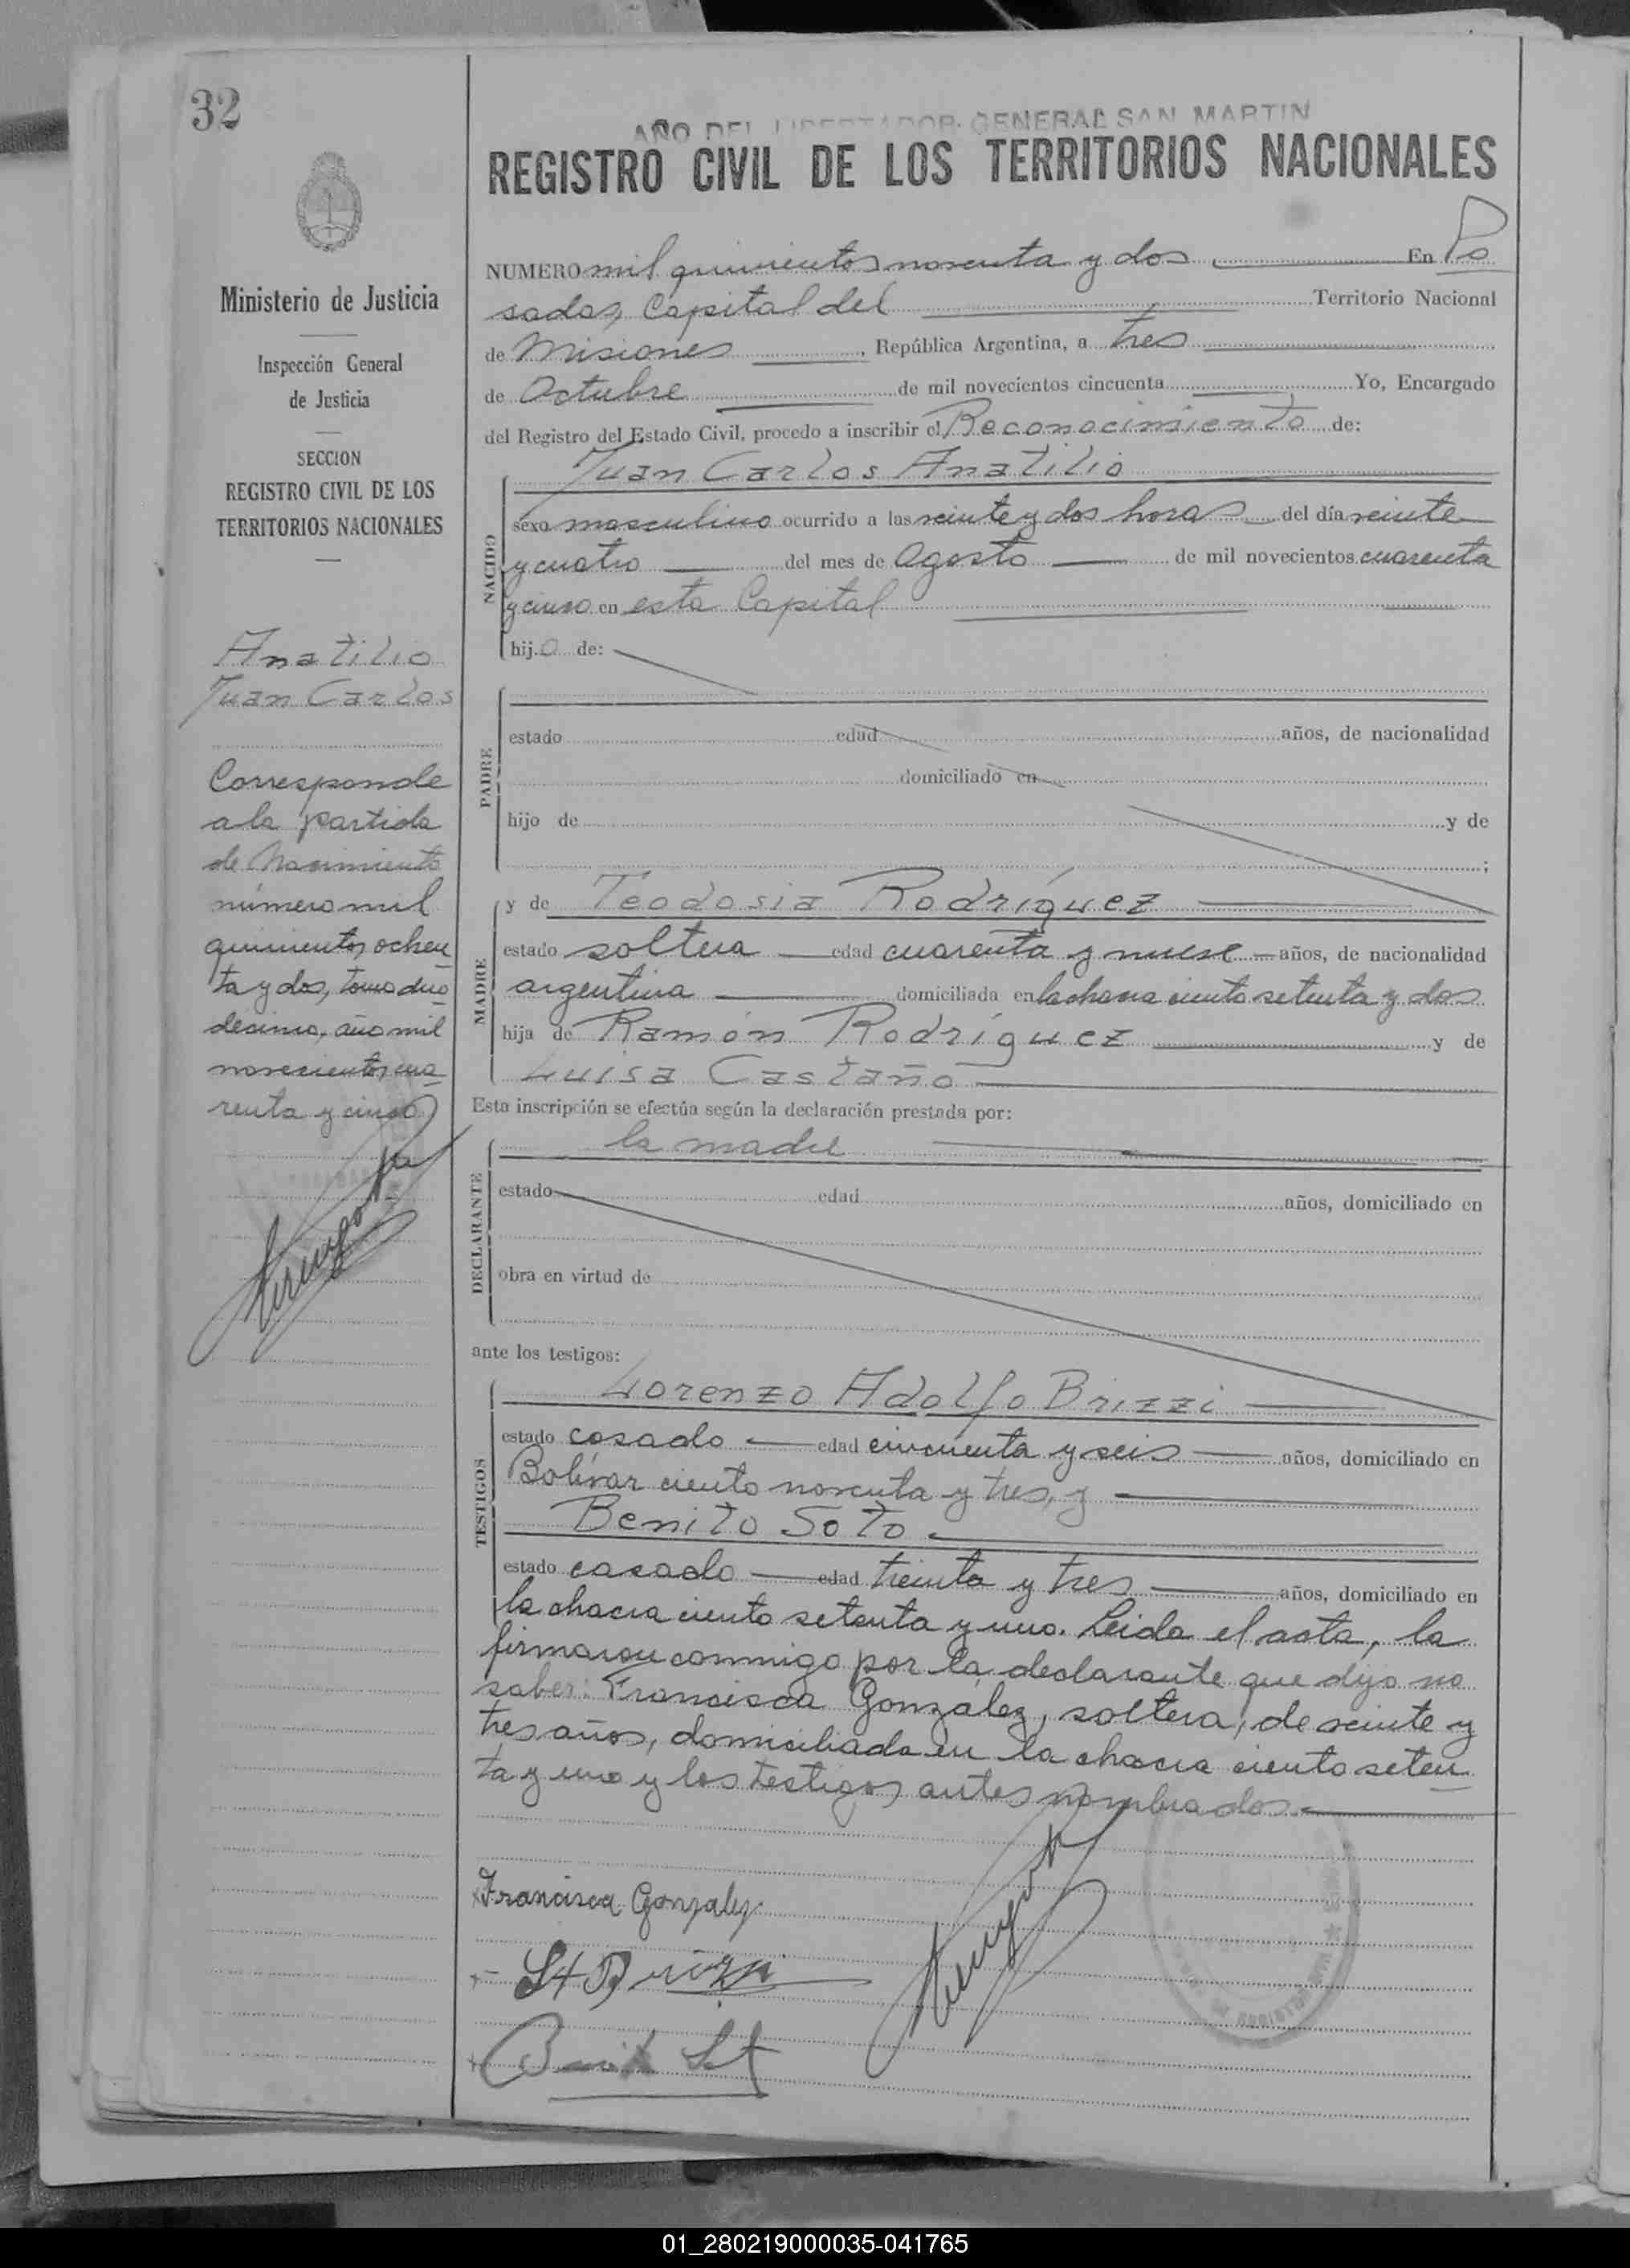 32
AÑO DEL LIBERTADOR GENERAL SAN MARTIN
REGISTRO CIVIL DE LOS TERRITORIOS NACIONALES
Ministerio de Justicia
Inspección General
de Justicia
SECCION
REGISTRO CIVIL DE LOS
TERRITORIOS NACIONALES
Anatilio
Juan Carlos
Corresponde
a la partida
de Nacimiento
número mil
quinientos ochen
ta y dos, tomo duo
décimo, año mil
novecientos cua
renta y cinco
NUMERO mil quinientos noventa y dos En Po
sadas, Capital del Territorio Nacional
de Misiones, República Argentina, a tres
de Octubre de mil novecientos cincuenta Yo, Encargado
del Registro del Estado Civil, procedo a inscribir el Reconocimiento de:
Juan Carlos Anatilio
NACIDO
sexo masculino ocurrido a las veinte y dos horas del día veinte
y cuatro del mes de Agosto de mil novecientos cuarenta
y cinco en esta Capital
hijo de:
PADRE
estado edad años, de nacionalidad
domiciliado en
hijo de y de
;
MADRE
y de Teodosia Rodríguez
estado soltera edad cuarenta y nueve años, de nacionalidad
argentina domiciliada en la chacra ciento setenta y dos
hija de Ramón Rodríguez y de
Luisa Castaño
Esta inscripción se efectúa según la declaración prestada por:
la madre
DECLARANTE
estado edad años, domiciliado en
obra en virtud de
ante los testigos:
TESTIGOS
Lorenzo Adolfo Brizzi
estado casado edad cincuenta y seis años, domiciliado en
Bolívar ciento noventa y tres, y
Benito Soto
estado casado edad treinta y tres años, domiciliado en
la chacra ciento setenta y uno. Leida el acta, la
firmaron conmigo por la declarante que dijo no
saber: Francisca González, soltera, de veinte y
tres años, domiciliada en la chacra ciento seten
ta y uno y los testigos antes nombrados.
Francisca Gonzalez
LABrizzi
Benito Soto
01_280219000035-041765